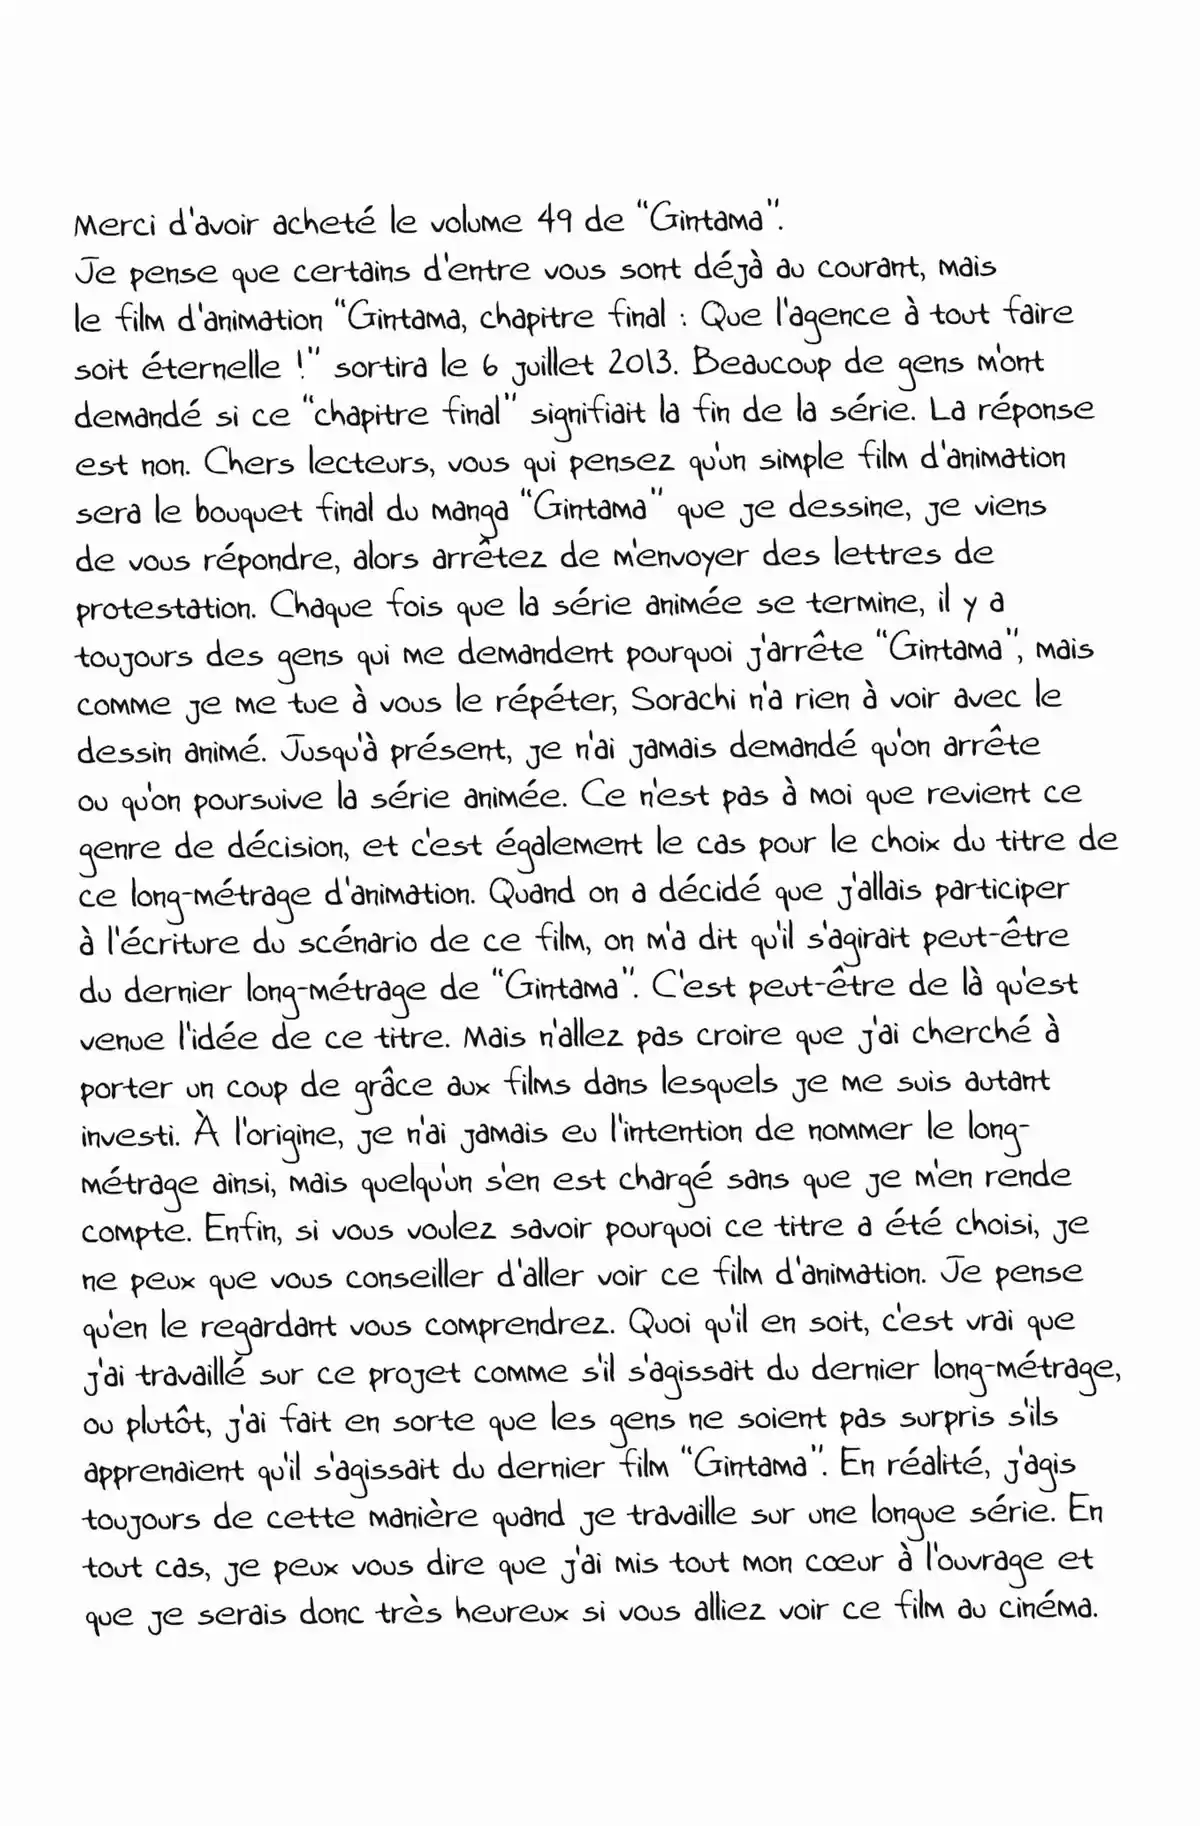 Merci d'avoir acheté le volume 49 de "Gintama".
Je pense que certains d'entre vous sont déjà au courant, mais
le film d'animation "Gintama, chapitre final : Que l'agence à tout faire
soit éternelle !" sortira le 6 juillet 2013. Beaucoup de gens m'ont
demandé si ce "chapitre final" signifiait la fin de la série. La réponse
est non. Chers lecteurs, vous qui pensez qu'un simple film d'animation
sera le bouquet final du manga "Gintama" que je dessine, je viens
de vous répondre, alors arrêtez de m'envoyer des lettres de
protestation. Chaque fois que la série animée se termine, il y a
toujours des gens qui me demandent pourquoi j'arrête "Gintama", mais
comme je me tue à vous le répéter, Sorachi n'a rien à voir avec le
dessin animé. Jusqu'à présent, je n'ai jamais demandé qu'on arrête
ou qu'on poursuive la série animée. Ce n'est pas à moi que revient ce
genre de décision, et c'est également le cas pour le choix du titre de
ce long-métrage d'animation. Quand on a décidé que j'allais participer
à l'écriture du scénario de ce film, on m'a dit qu'il s'agirait peut-être
du dernier long-métrage de "Gintama". C'est peut-être de là qu'est
venue l'idée de ce titre. Mais n'allez pas croire que j'ai cherché à
porter un coup de grâce aux films dans lesquels je me suis autant
investi. À l'origine, je n'ai jamais eu l'intention de nommer le long-
métrage ainsi, mais quelqu'un s'en est chargé sans que je m'en rende
compte. Enfin, si vous voulez savoir pourquoi ce titre a été choisi, je
ne peux que vous conseiller d'aller voir ce film d'animation. Je pense
qu'en le regardant vous comprendrez. Quoi qu'il en soit, c'est vrai que
j'ai travaillé sur ce projet comme s'il s'agissait du dernier long-métrage,
ou plutôt, j'ai fait en sorte que les gens ne soient pas surpris s'ils
apprenaient qu'il s'agissait du dernier film "Gintama". En réalité, j'agis
toujours de cette manière quand je travaille sur une longue série. En
tout cas, je peux vous dire que j'ai mis tout mon cœur à l'ouvrage et
que je serais donc très heureux si vous alliez voir ce film au cinéma.